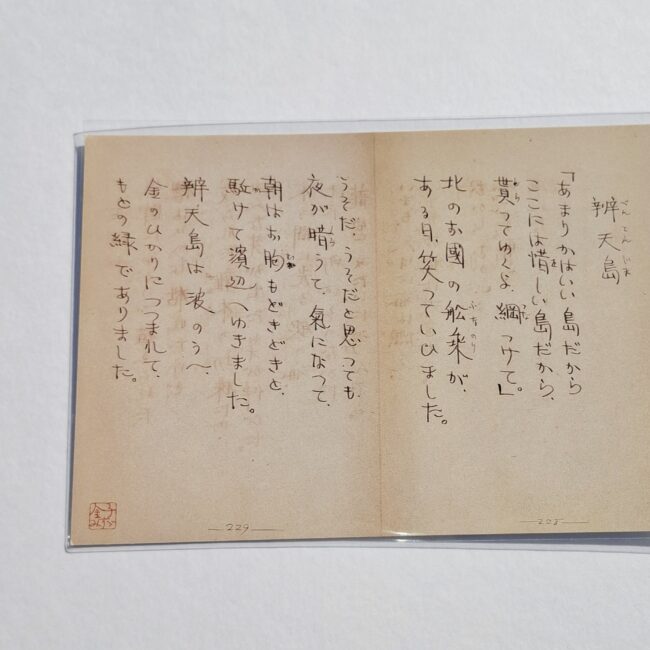 辨天島
べんてんじま
「あまりかはいい島だから
ここには惜しい島だから、
貰つてゆくよ、綱つけて。」
北のお國の舩乘が、
ある日、笑つていひました。
うそだ、うそだと思つても、
夜が暗うて、氣になつて、
朝はお胸もどきどきと、
駈けて濱辺へゆきました。
辨天島は波のうへ、
金のひかりにつつまれて、
もとの緑でありました。
228
229
金子みすゞ